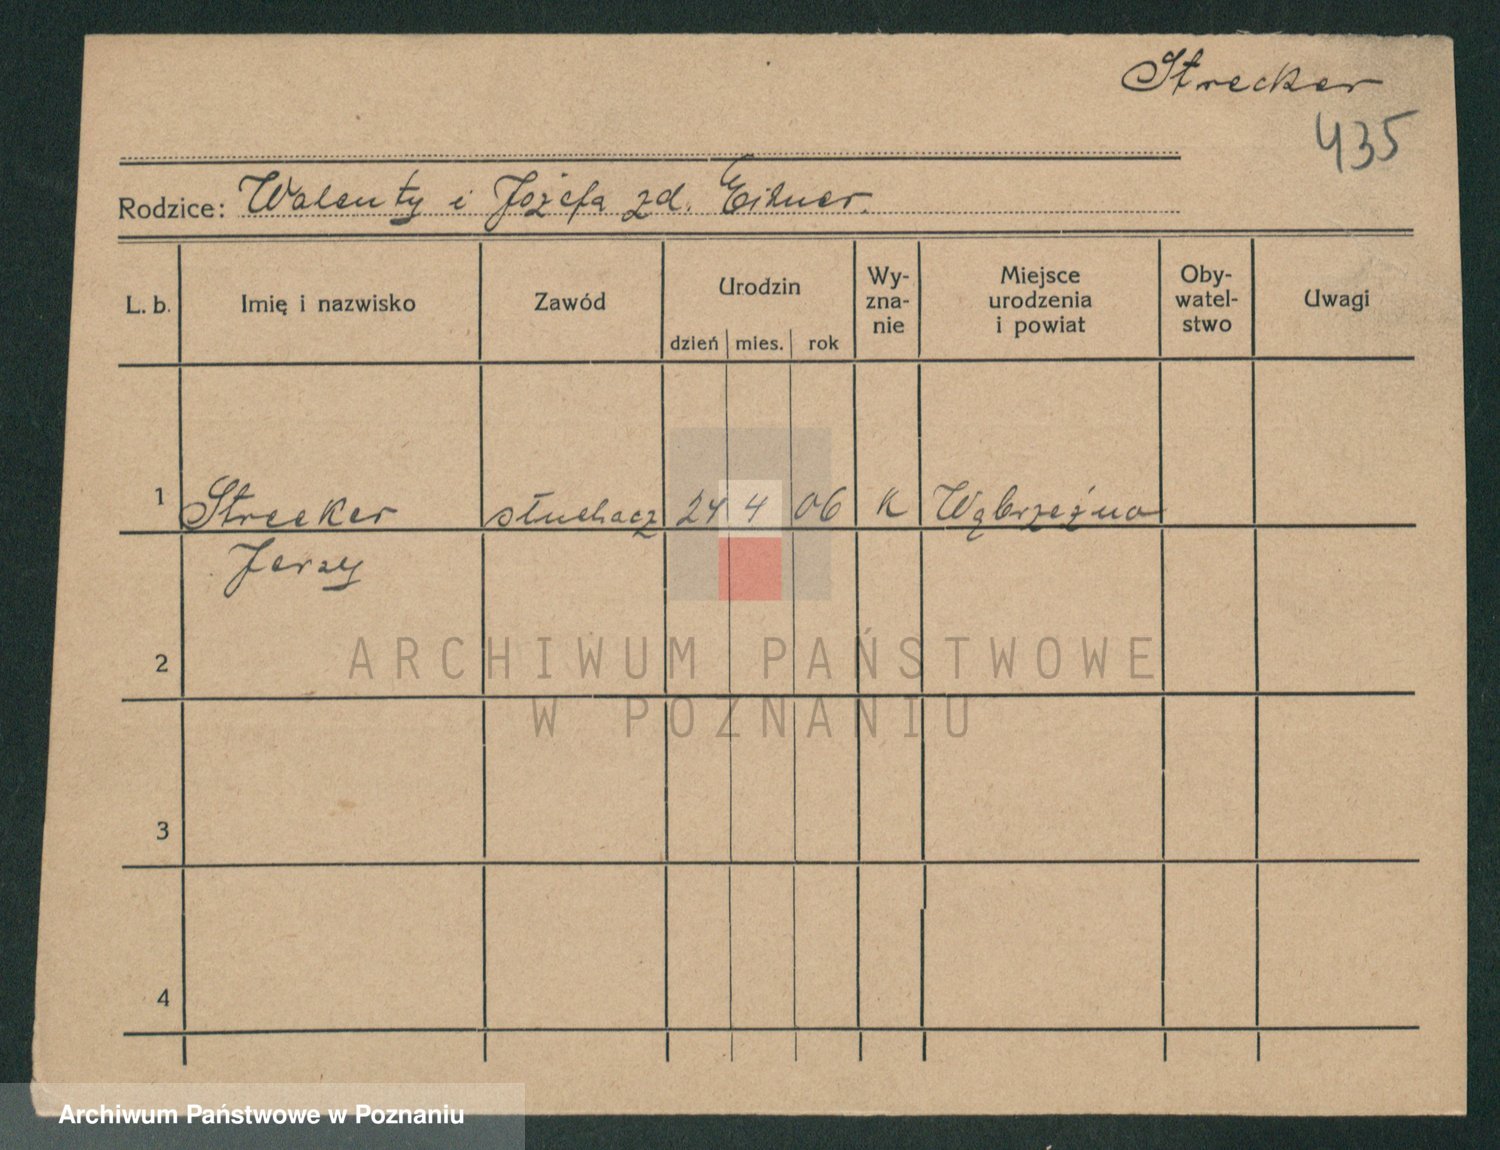 Strecker
435
Rodzice: Walenty i Józefa zd. Eitner.
L. b. Imię i nazwisko Zawód Urodzin dzień mies. rok Wy-zna-nie Miejsce urodzenia i powiat Oby-watel-stwo Uwagi
1 Strecker słuchacz 24 4 06 K Wąbrzeźno
Jerzy
2
3
4
ARCHIWUM PAŃSTWOWE
W POZNANIU
Archiwum Państwowe w Poznaniu